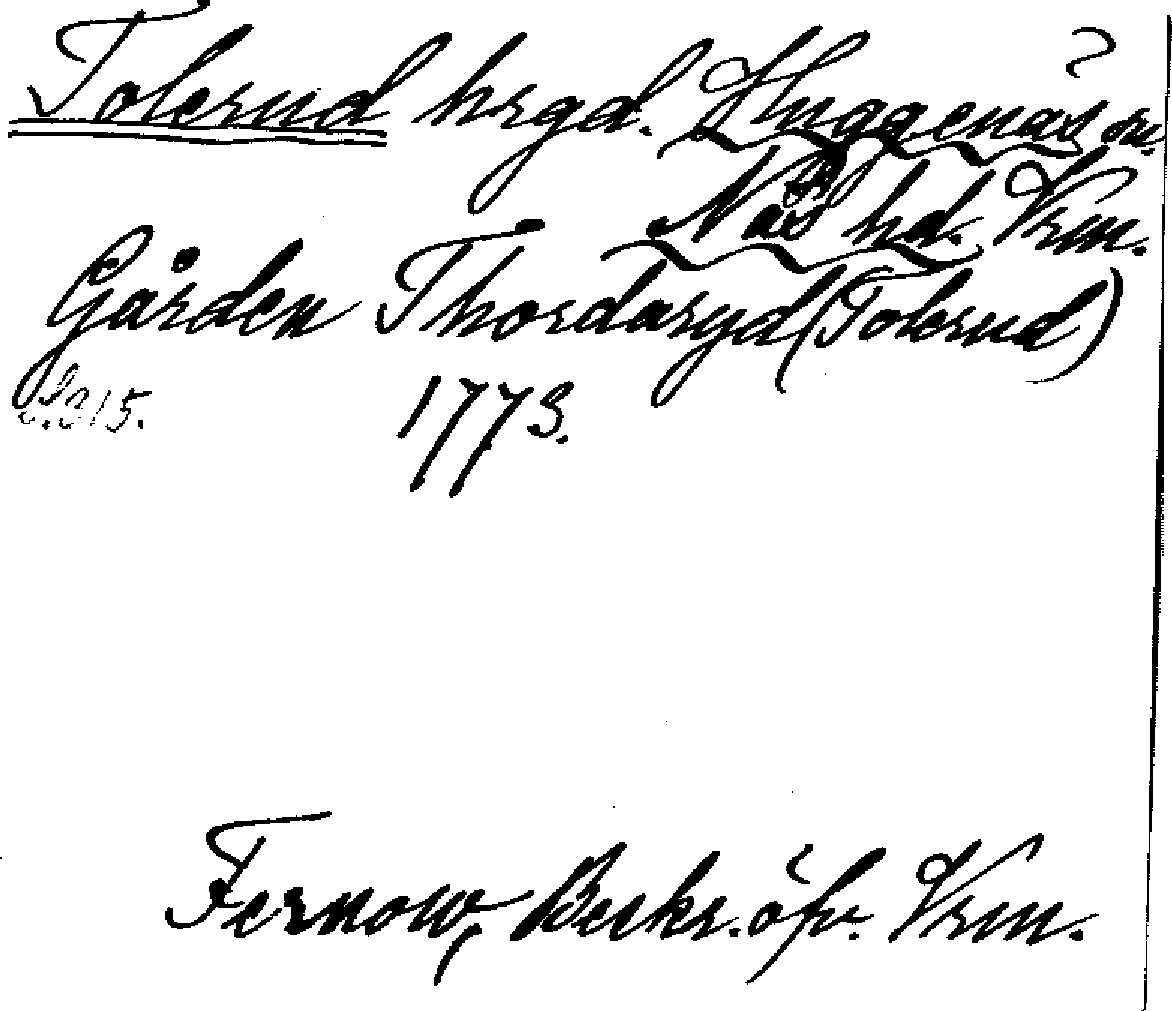 Tolerud hrgd. Huggenäs sn.
Näs hd. Vrm.
Gården Thordaryd (Tolerud)
s. 315. 1773.
Fernow, Beskr. öfv. Vrm.